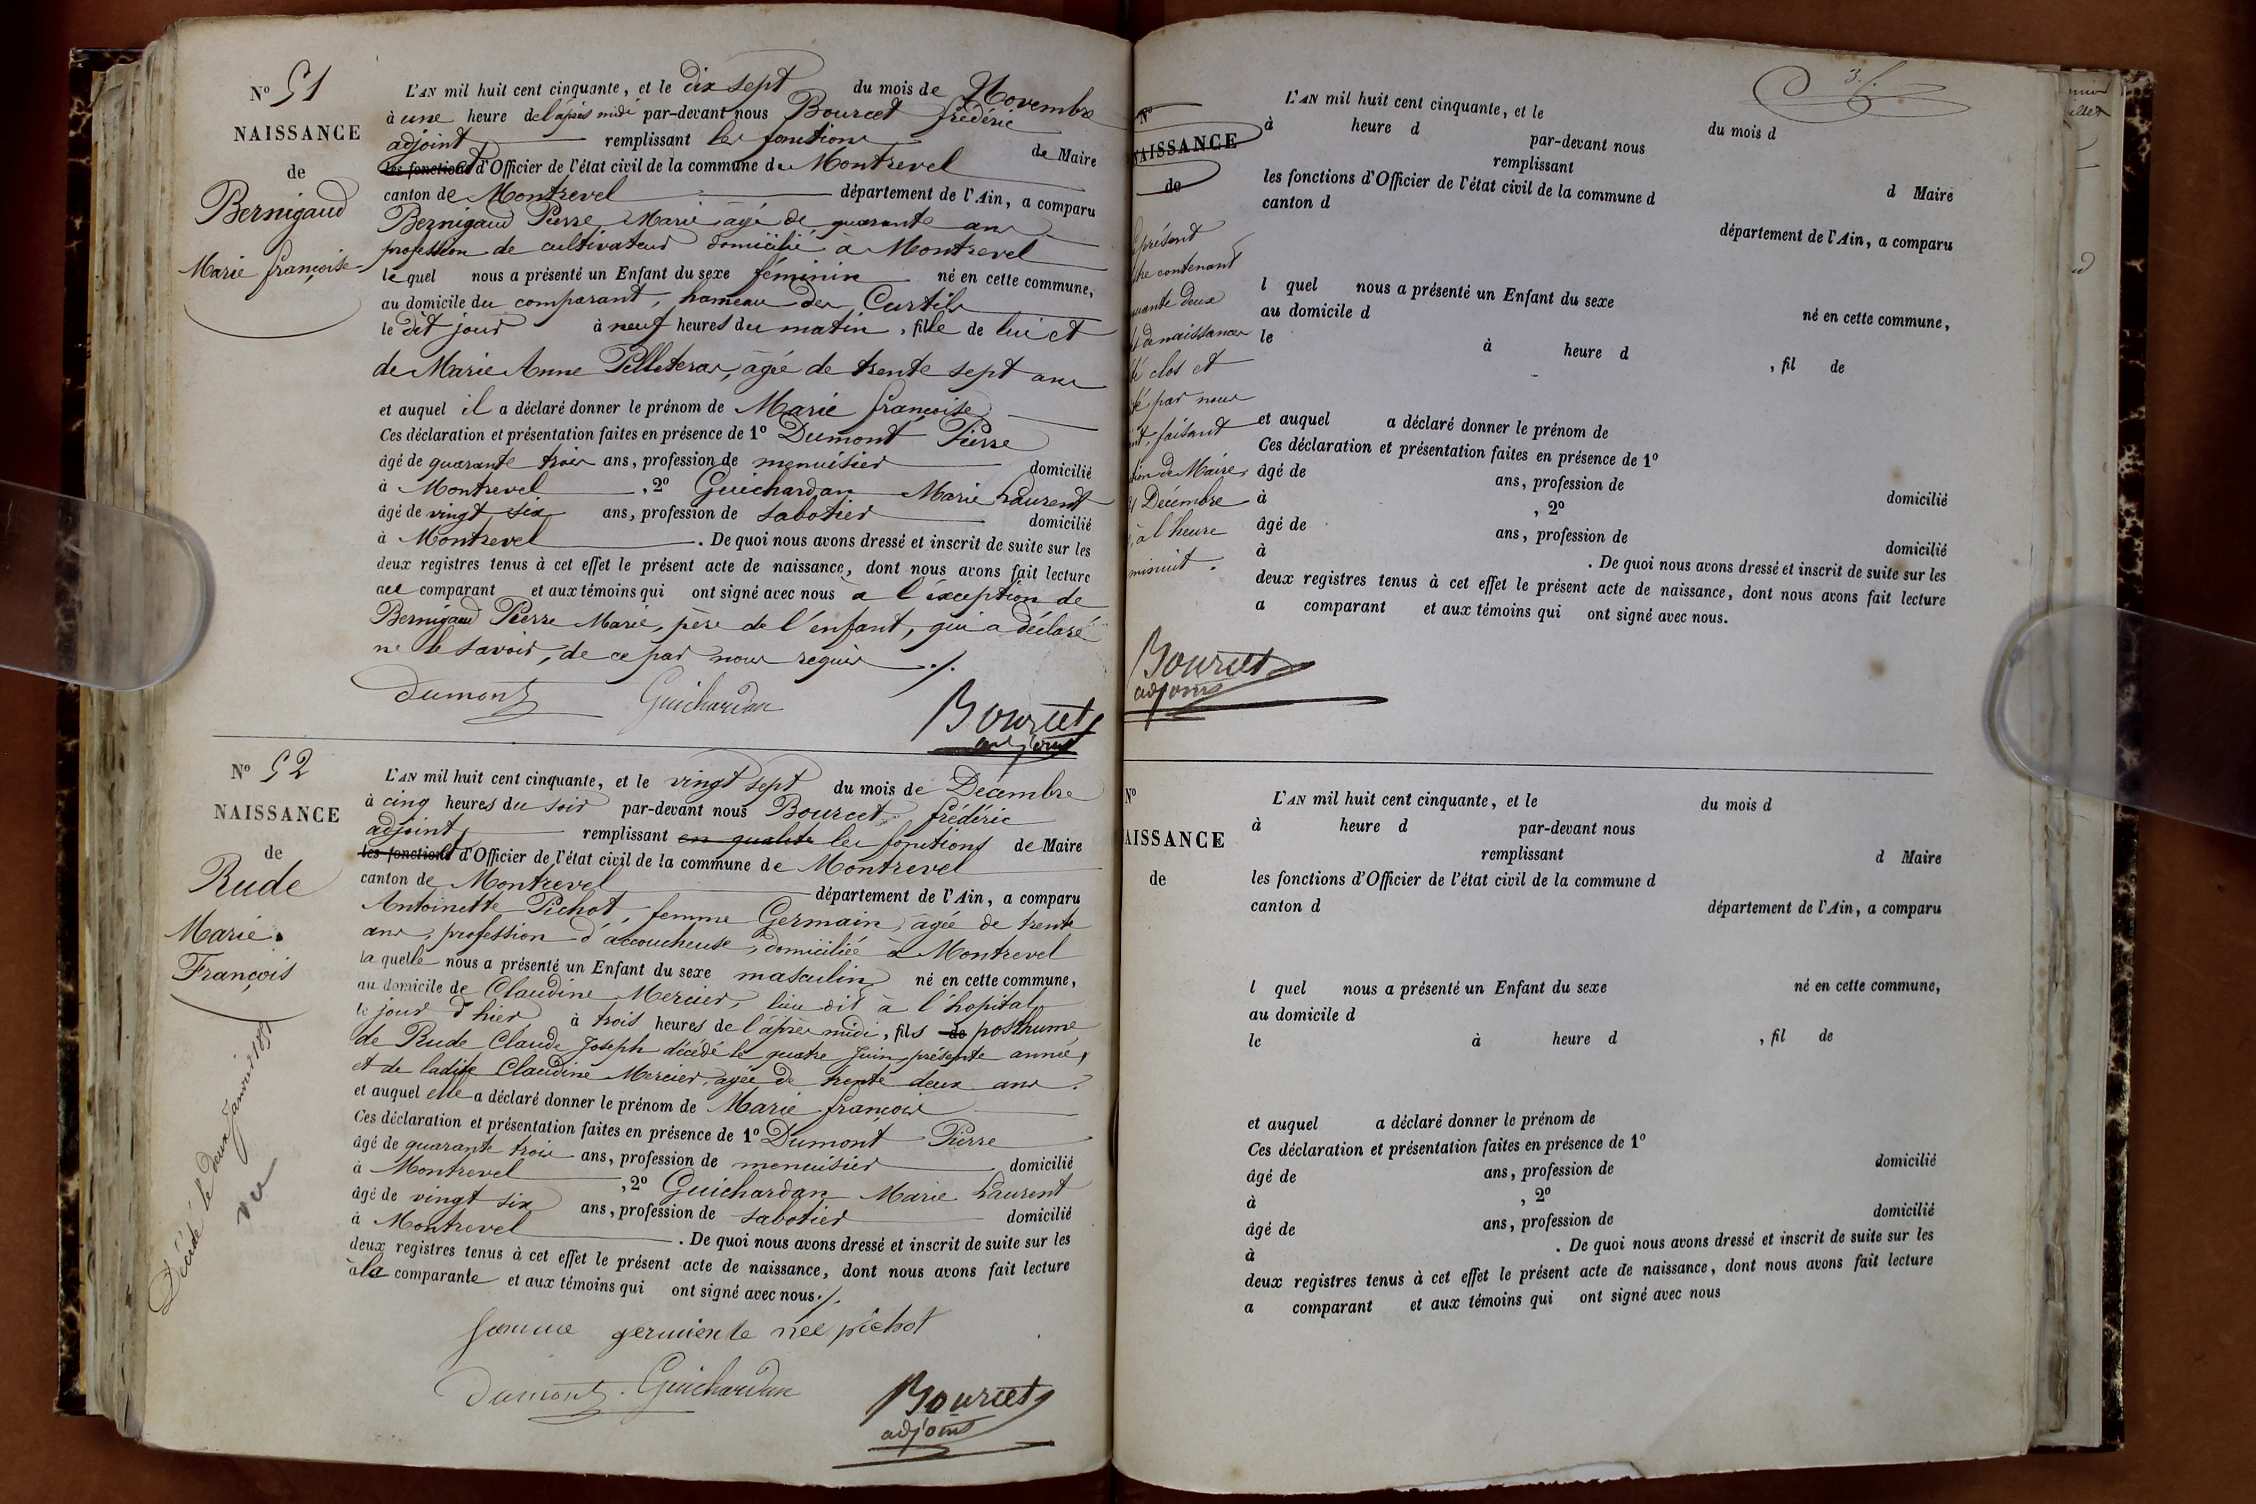 N° 51
NAISSANCE
de
Bernigaud
Marie françoise
L'AN mil huit cent cinquante, et le dix sept du mois de Novembre
à une heure de l'après midi par-devant nous Bourcet frédéric
adjoint remplissant les fonctions de Maire
les fonctions d'Officier de l'état civil de la commune de Montrevel
canton de Montrevel département de l'Ain, a comparu
Bernigaud Pierre Marie âgé de quarante ans
profession de cultivateur domicilié à Montrevel
le quel nous a présenté un Enfant du sexe féminin né en cette commune,
au domicile du comparant, hameau des Curtils
le dit jour à neuf heures du matin, fille de lui et
de Marie Anne Pelleteras, âgée de trente sept ans
et auquel il a déclaré donner le prénom de Marie françoise
Ces déclaration et présentation faites en présence de 1° Dumont Pierre
âgé de quarante trois ans, profession de menuisier domicilié
à Montrevel, 2° Guichardan Marie Laurent
âgé de vingt six ans, profession de sabotier domicilié
à Montrevel. De quoi nous avons dressé et inscrit de suite sur les
deux registres tenus à cet effet le présent acte de naissance, dont nous avons fait lecture
au comparant et aux témoins qui ont signé avec nous à l'éxception de
Bernigaud Pierre Marie, père de l'enfant, qui a déclaré
ne le savoir, de ce par nous requis ./.
Dumont Guichardan Bourcet
adjoint
N° 52
NAISSANCE
de
Rude
Marie
François
Décédé le deux Janvier
vu
L'AN mil huit cent cinquante, et le vingt sept du mois de Décembre
à cinq heures du soir par-devant nous Bourcet frédéric
adjoint remplissant en qualité les fonctions de Maire
les fonctions d'Officier de l'état civil de la commune de Montrevel
canton de Montrevel département de l'Ain, a comparu
Antoinette Pichot, femme Germain, âgée de trente
ans, profession d'accoucheuse, domiciliée à Montrevel
la quelle nous a présenté un Enfant du sexe masculin né en cette commune,
au domicile de Claudine Mercier, lieu dit à l'hopital
le jour d'hier à trois heures de l'après midi, fils de posthume
de Rude Claude Joseph décédé le quatre Juin présente année,
et de ladite Claudine Mercier, âgée de trente deux ans
et auquel elle a déclaré donner le prénom de Marie françois
Ces déclaration et présentation faites en présence de 1° Dumont Pierre
âgé de quarante trois ans, profession de menuisier domicilié
à Montrevel, 2° Guichardan Marie Laurent
âgé de vingt six ans, profession de sabotier domicilié
à Montrevel. De quoi nous avons dressé et inscrit de suite sur les
deux registres tenus à cet effet le présent acte de naissance, dont nous avons fait lecture
à la comparante et aux témoins qui ont signé avec nous ./.
femme germiente née pichot
Dumont Guichardan
Bourcet
adjoint
N°
NAISSANCE
de
présent
contenant
deux
de naissances
clos et
par nous
faisant
de Maire
Décembre
à l'heure
minuit.
Bourcet
adjoint
L'AN mil huit cent cinquante, et le du mois d
à heure d par-devant nous
remplissant d Maire
les fonctions d'Officier de l'état civil de la commune d
canton d département de l'Ain, a comparu
l quel nous a présenté un Enfant du sexe né en cette commune,
au domicile d
le à heure d , fil de
et auquel a déclaré donner le prénom de
Ces déclaration et présentation faites en présence de 1°
âgé de ans, profession de domicilié
à , 2°
âgé de ans, profession de domicilié
à . De quoi nous avons dressé et inscrit de suite sur les
deux registres tenus à cet effet le présent acte de naissance, dont nous avons fait lecture
a comparant et aux témoins qui ont signé avec nous.
N°
AISSANCE
de
L'AN mil huit cent cinquante, et le du mois d
à heure d par-devant nous
remplissant d Maire
les fonctions d'Officier de l'état civil de la commune d
canton d département de l'Ain, a comparu
l quel nous a présenté un Enfant du sexe né en cette commune,
au domicile d
le à heure d , fil de
et auquel a déclaré donner le prénom de
Ces déclaration et présentation faites en présence de 1°
âgé de ans, profession de domicilié
à , 2°
âgé de ans, profession de domicilié
à . De quoi nous avons dressé et inscrit de suite sur les
deux registres tenus à cet effet le présent acte de naissance, dont nous avons fait lecture
a comparant et aux témoins qui ont signé avec nous